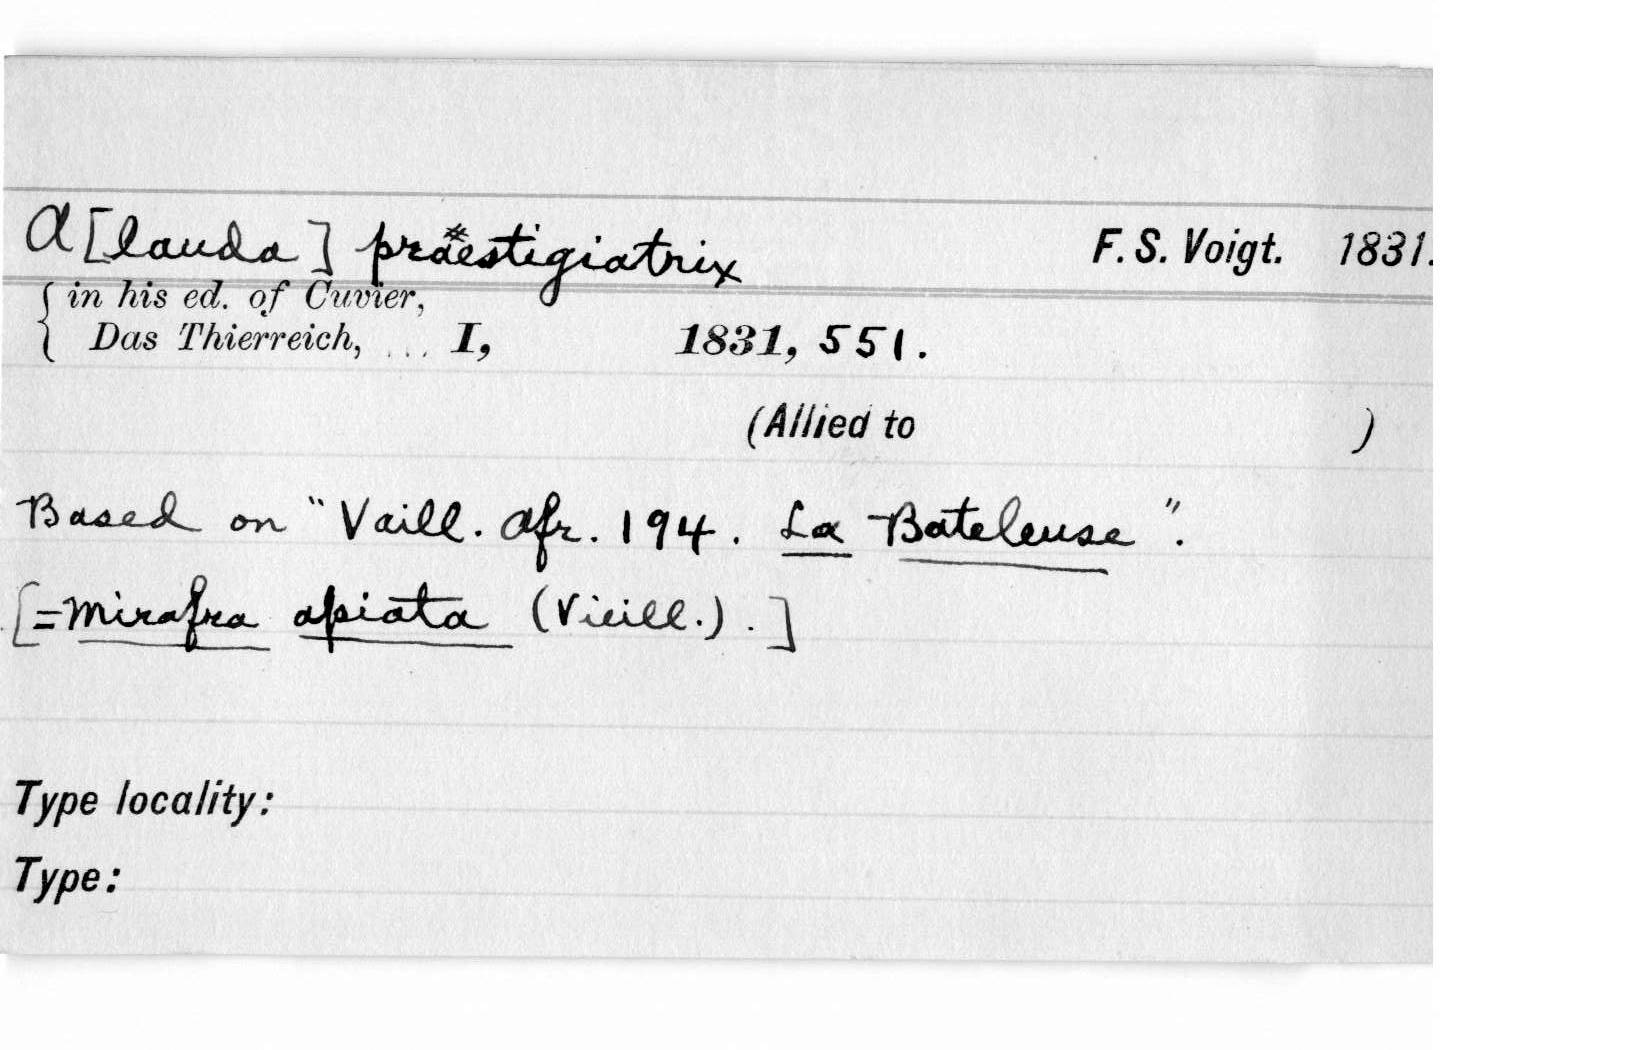 A[lauda] praestigiatrix F. S. Voigt. 1831.
{ in his ed. of Cuvier,
Das Thierreich, ... I, 1831, 551.
(Allied to )
Based on "Vaill. Afr. 194. La Bateleuse".
[=Mirafra apiata (Vieill.).]
Type locality:
Type: